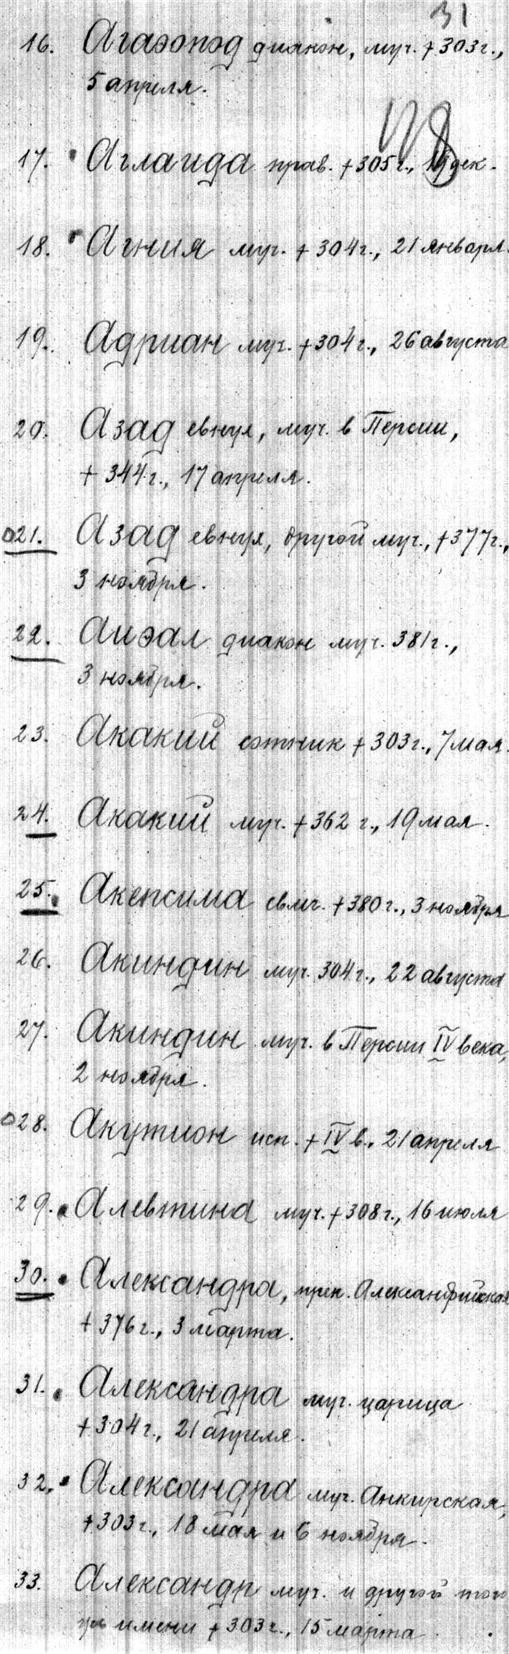 31
16. Агаѳопод диакон, муч. +303г.,
5 апреля.
17. Аглаида прав. +305г., 19 дек.
18. Агния муч. +304г., 21 января.
19. Адриан муч. +304г., 26 августа
20. Азад евнух, муч. в Персии,
+ 344г., 17 апреля.
21. Азад евнух, другой муч., +377г.,
3 ноября.
22. Аиѳал диакон муч. 381г.,
3 ноября.
23. Акакий сотник +303г., 7 мая.
24. Акакий муч. +362 г., 19 мая.
25. Акепсима свмч. +380г., 3 ноября
26. Акиндин муч. 304г., 22 августа
27. Акиндин муч. в Персии IV века,
2 ноября.
28. Акутион исп. +IV в., 21 апреля
29. Алевтина муч. +308г., 16 июля
30. Александра, преп. Александрийская
+376г., 3 марта.
31. Александра муч. царица
+304г., 21 апреля.
32. Александра муч. Анкирская,
+303г., 18 мая и 6 ноября.
33. Александр муч. и другой того
же имени +303г., 15 марта.